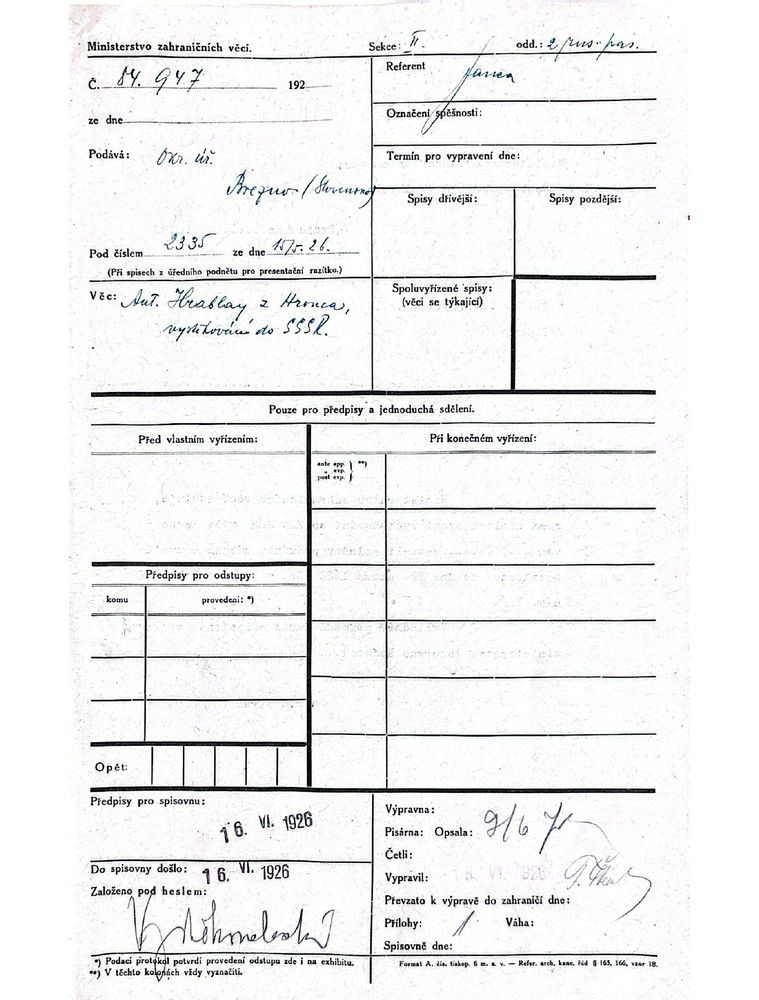 Ministerstvo zahraničních věcí.
Sekce: II.
odd.: 2
Č. 84.947 192
ze dne
Podává: Okr. úř.
Brezno (Slovensko)
Pod číslem 2335 ze dne 15/5. 26.
(Při spisech z úředního podnětu pro presentační razítko.)
Referent
Označení spěšnosti:
Termín pro vypravení dne:
Spisy dřívější:
Spisy pozdější:
Věc: Ant. Hrablay z Hronca,
vystěhování do SSSR.
Spoluvyřízené spisy:
(věci se týkající)
Pouze pro předpisy a jednoduchá sdělení.
Před vlastním vyřízením:
Při konečném vyřízení:
ante app. } **)
„ exp.
post exp. }
Předpisy pro odstupy:
komu
provedení: *)
Opět:
Předpisy pro spisovnu:
16. VI. 1926
Do spisovny došlo: 16. VI. 1926
Založeno pod heslem:
*) Podací protokol potvrdí provedení odstupu zde i na exhibitu.
**) V těchto kolonách vždy vyznačiti.
Výpravna:
Pisárna: Opsala: 9/6
Četli:
Vypravil: 16. VI. 1926
Převzato k výpravě do zahraničí dne:
Přílohy: 1 Váha:
Spisovně dne:
Format A. čís. tiskop. 6 m. z. v. — Refer. arch. kanc. řád § 165, 166, vzor 18.